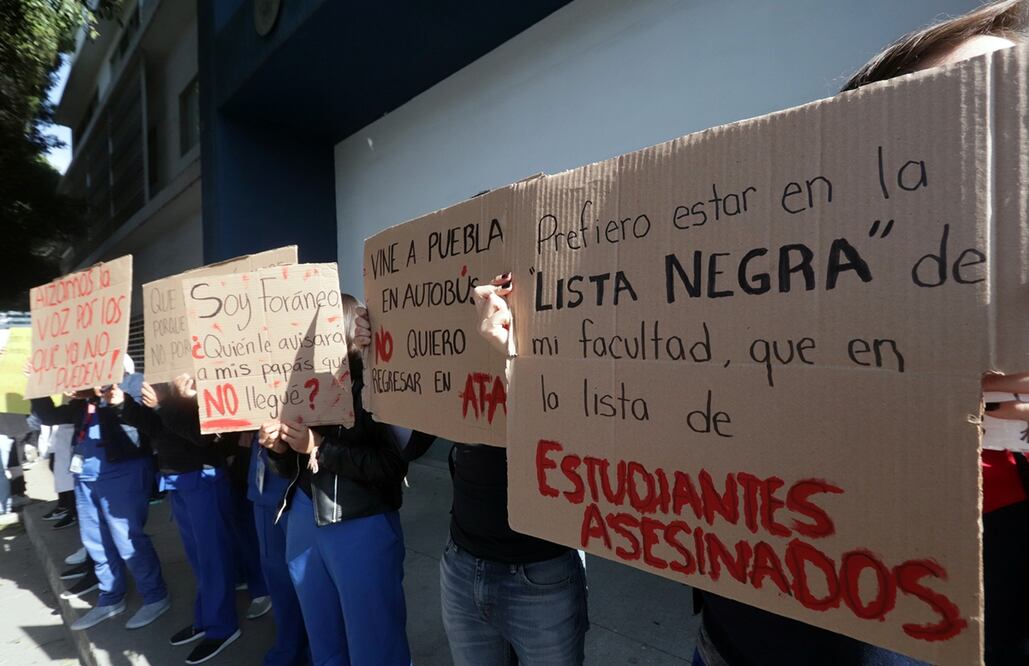 Alzamos la
VOZ POR LOS
QUE YA NO
PUEDEN!
QUE
PORQUE
NO POR
Soy foráneo
¿Quién le avisará
a mis papás que
NO llegué?
VINE A PUEBLA
EN AUTOBÚS
NO QUIERO
REGRESAR EN ATA
Prefiero estar en la
"LISTA NEGRA" de
mi facultad, que en
la lista de
ESTUDIANTES
ASESINADOS